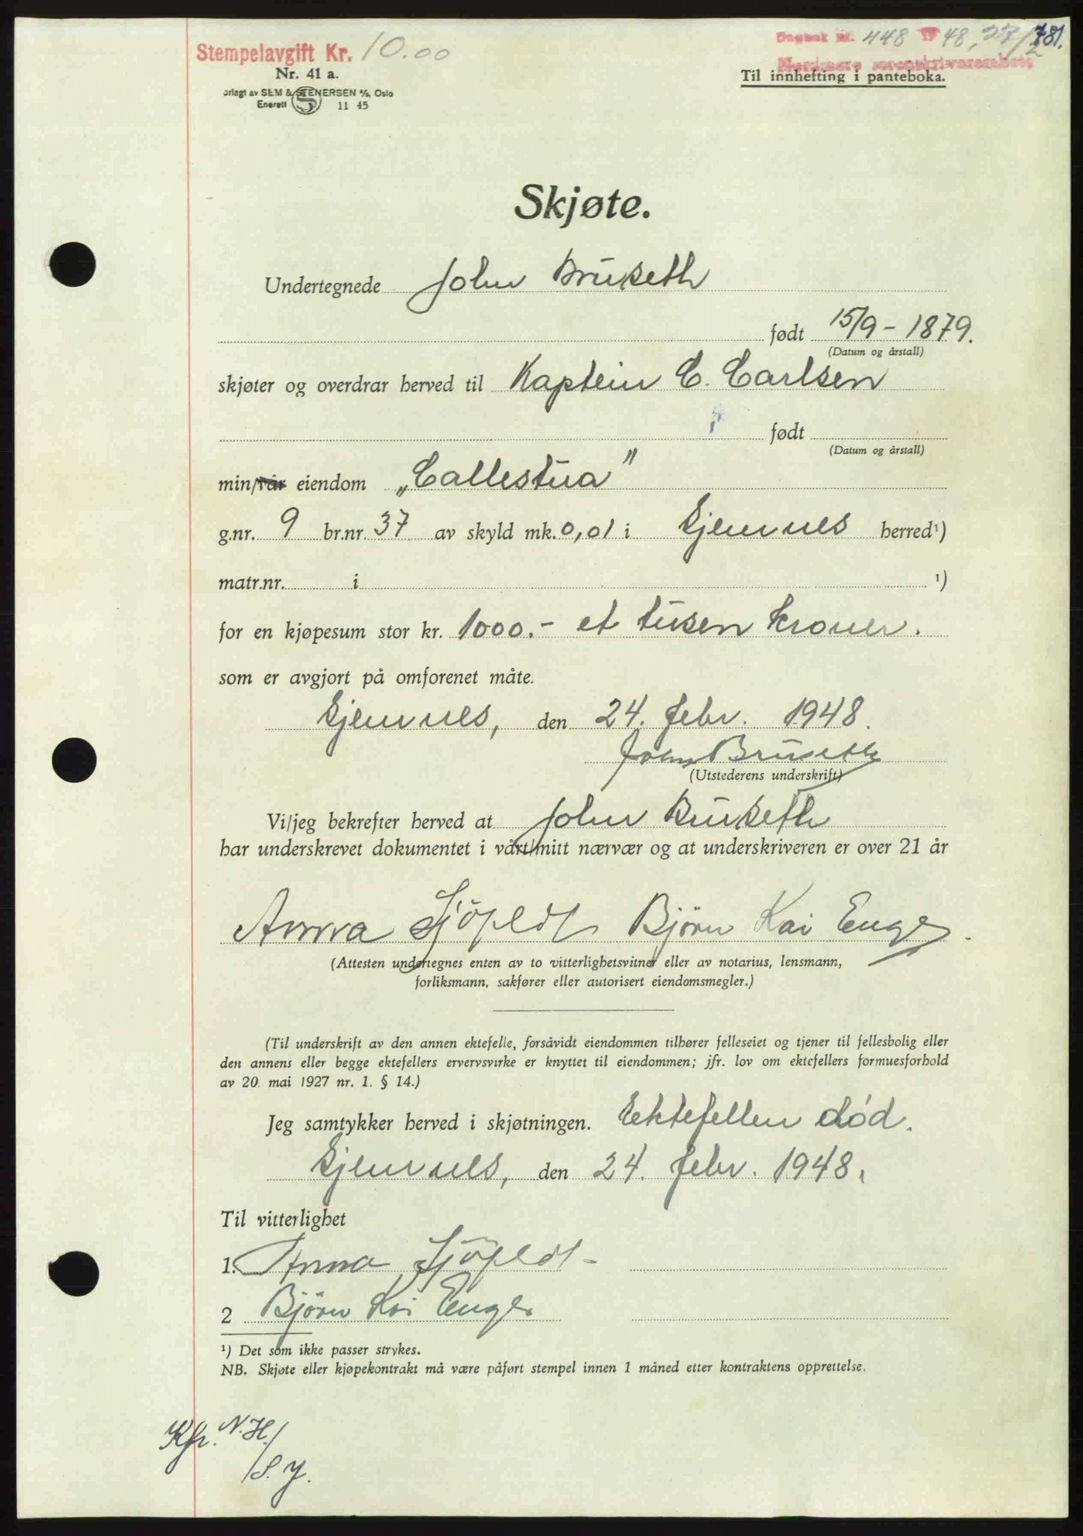 Stempelavgift Kr. 10.00
Dagbok nr. 448 19 48, 27/2 781.
Nr. 41 a.
Nordmøre sorenskriverembete
Til innhefting i panteboka.
orlagt av SEM & STENERSEN A/S, Oslo
Enerett S 11 45
Skjøte.
Undertegnede John Bruseth
født 15/9 - 1879.
(Datum og årstall)
skjøter og overdrar herved til Kaptein C. Carlsen
født
(Datum og årstall)
min/vår eiendom „Callestua"
g.nr. 9 br.nr. 37 av skyld mk. 0,01 i Gjemnes herred¹)
matr.nr. i ¹)
for en kjøpesum stor kr. 1000.- et tusen kroner.
som er avgjort på omforenet måte.
Gjemnes, den 24. febr. 1948.
John Bruseth
(Utstederens underskrift)
Vi/jeg bekrefter herved at John Bruseth
har underskrevet dokumentet i vårt/mitt nærvær og at underskriveren er over 21 år
Anna Björn Kai Enge
(Attesten undertegnes enten av to vitterlighetsvitner eller av notarius, lensmann,
forliksmann, sakfører eller autorisert eiendomsmegler.)
(Til underskrift av den annen ektefelle, forsåvidt eiendommen tilhører felleseiet og tjener til fellesbolig eller
den annens eller begge ektefellers ervervsvirke er knyttet til eiendommen; jfr. lov om ektefellers formuesforhold
av 20. mai 1927 nr. 1. § 14.)
Jeg samtykker herved i skjøtningen. Ektefellen død.
Gjemnes, den 24. febr. 1948.
Til vitterlighet
1. Anna
2 Björn Kai Enge
¹) Det som ikke passer strykes.
NB. Skjøte eller kjøpekontrakt må være påført stempel innen 1 måned etter kontraktens opprettelse.
Kfr. N.H.
/S.Y.